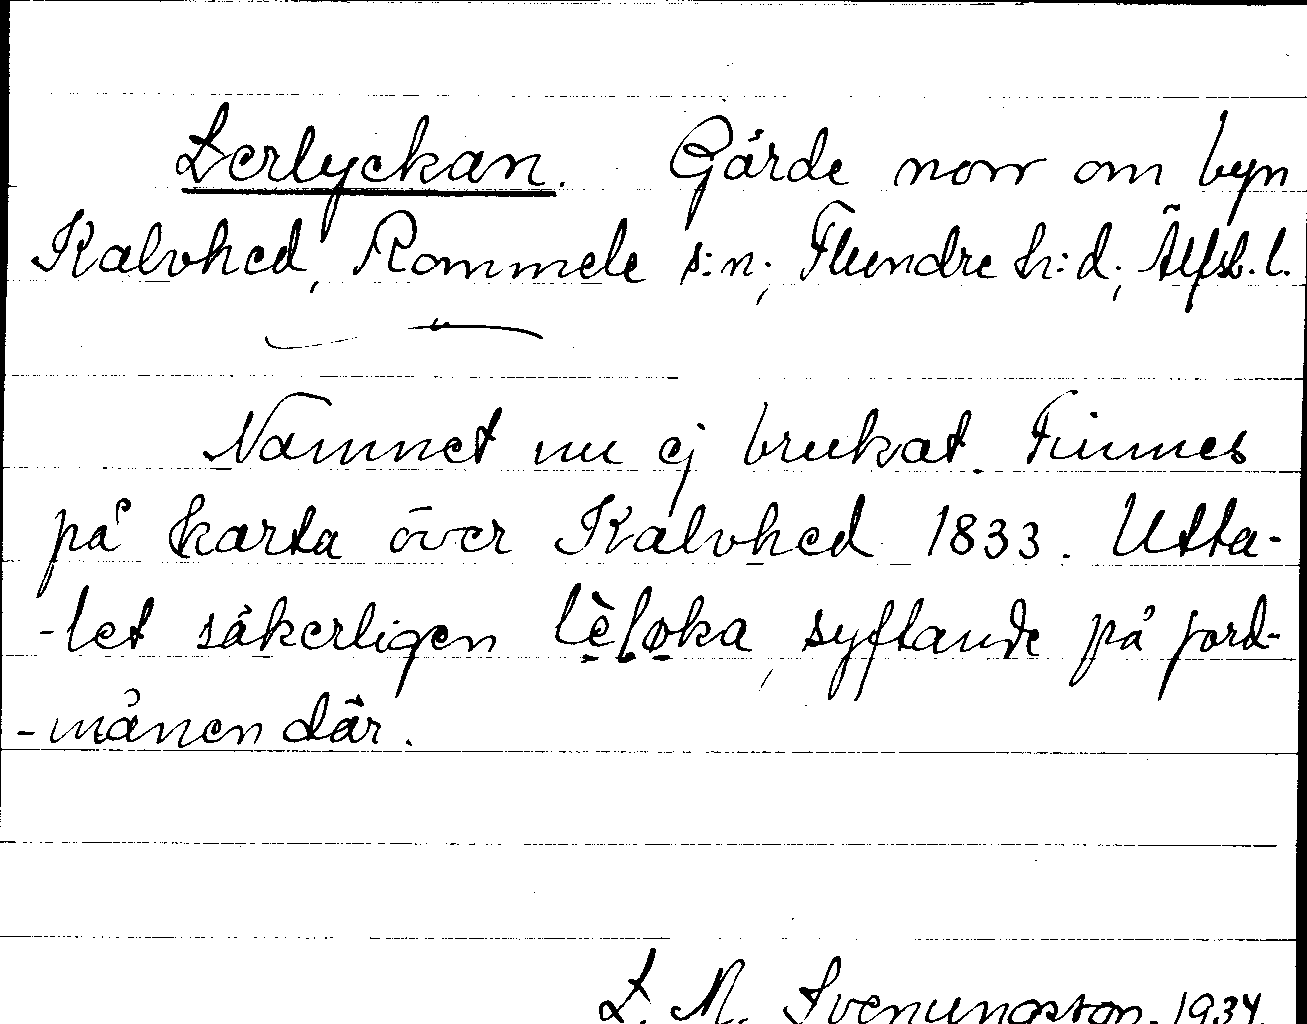 Lerlyckan. Gärde norr om byn
Kalvhed, Rommele s:n; Flundre h:d; Älfsb. l.
Namnet nu ej brukat. Finnes
på karta över Kalvhed 1833. Utta-
-let säkerligen lèløka, syftande på jord-
-månen där.
L. M. Svenungsson. 1934.